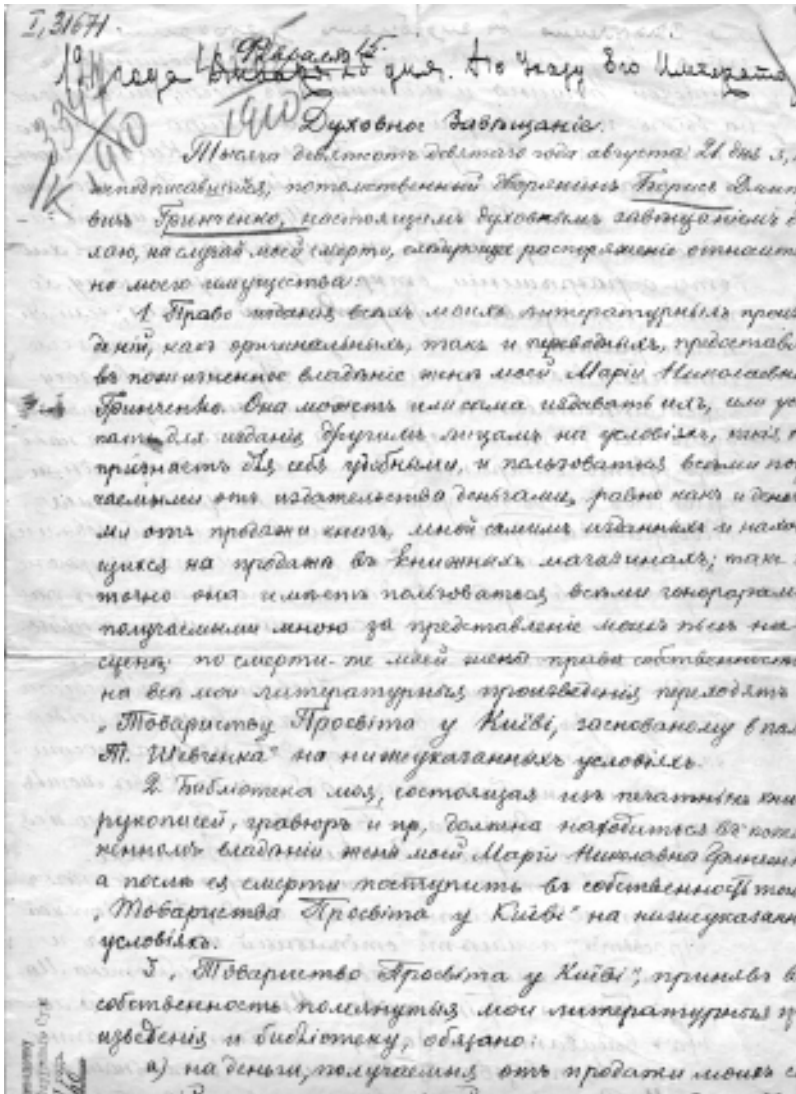 I, 31671
Февраля 15
1910 дня. По Указу Его Императо
1910
Духовное Завѣщаніе.
Тысяча девятсотъ девятаго года августа 21 дня я, н
жеподписавшійся, потомственный дворянинъ Борисъ Дмит
вичъ Гринченко, настоящимъ духовнымъ завѣщаніемъ д
лаю, на случай моей смерти, слѣдующее распоряженіе относит
но моего имущества:
1. Право изданія всѣхъ моихъ литературныхъ произ
деній, какъ оригинальныхъ, такъ и переводныхъ, предостав
въ пожизненное владѣніе женѣ моей Маріи Николаевн
Гринченко. Она можетъ или сама издавать ихъ, или уст
пать для изданія другимъ лицамъ на условіяхъ, какія
признаетъ для себя удобными, и пользоваться всѣми по
чаемыми отъ издательства деньгами, равно какъ и день
ми отъ продажи книгъ, мной самимъ изданныхъ и нахо
щихся на продажѣ въ книжныхъ магазинахъ; так
точно она имѣетъ пользоваться всѣми гонорарам
получаемыми мною за представленіе моихъ пьесъ на
сценѣ. По смерти-же моей жены право собственност
на всѣ мои литературныя произведенія переходятъ
„Товариству Просвіта у Київі, заснованому в па
Т. Шевченка“ на нижеуказанныхъ условіяхъ.
2. Библіотека моя, состоящая изъ печатныхъ кни
рукописей, гравюръ и пр., должна находиться въ пож
ненномъ владѣніи жены моей Маріи Николаевна Гринчен
а послѣ ея смерти поступить въ собственность то
„Товариства Просвіта у Київі“ на нижеуказанн
условіяхъ.
3. „Товариство Просвіта у Київі“, принявъ в
собственность помянутыя мои литературныя пр
изведенія и библіотеку, обязано:
а) на деньги, получаемыя отъ продажи моихъ с